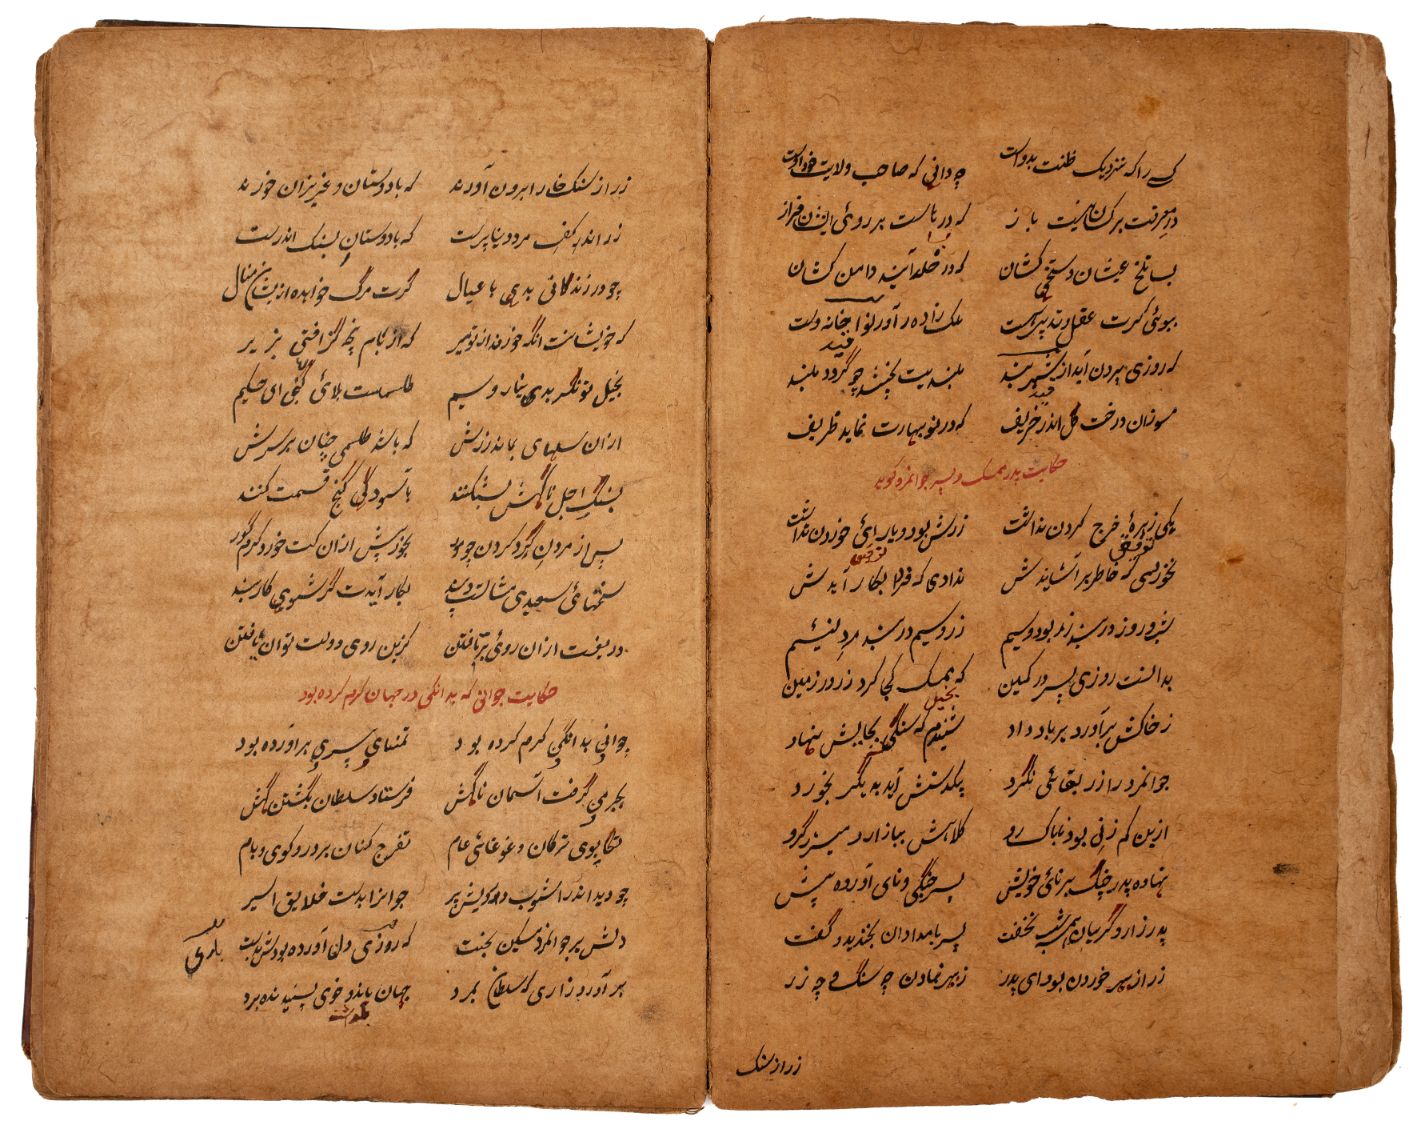 کسی را که نزدیک ظنت بدوست چه دانی که صاحب ولایت خود اوست
در معرفت بر کسانیست باز که درهاست بر روئی ایشان فراز
بسا تلخ عیشان و سختی کشان که در حله آیند دامن کشان
ببوئی گرت عقل و تدبیر هست ملک زاده را در نوا خانه دست
قید
که روزی برون آید از شهر بند بلندیت بخشد چو گردد بلند
قید
مسوزان درخت گل اندر خریف که در نوبهارت نماید ظریف
حکایت پدر ممسک و پسر جوانمرد گوید
یکی زهرهٔ خرج کردن نداشت زرش بود و یارائی خوردن نداشت
توفیق توفیق
نخوردی که خاطر بر آسایدش ندادی که فردا بکار آیدش
شب و روز در بند زر بود و سیم زر و سیم در بند مرد لئیم
بدانست روزی پسر در کمین که ممسک کجا کرد زر در زمین
بخیل
ز خاکش برآورد و بر باد داد شنیدم که سنگی بجایش نهاد
جوانمرد را زر بقائی نکرد بیکدستش آمد بدیگر بخورد
ازین کم زنی بود ناپاک رو کلاهش ببازار و میزر گرو
نهاده پدر چنگ بر نائی خویش پسر چنگی و نای آورده پیش
پدر زار و گریان همه شب نخفت پسر بامدادان بخندید و گفت
زر از بهر خوردن بود ای پدر ز بهر نهادن چه سنگ و چه زر
زر از سنک
زر از سنک خارا برون آورند که با دوستان و عزیزان خورند
زر اندر کف مرد دنیا پرست که با دوستان بسنک اندرست
چو در زندگانی بدی با عیال گرت مرگ خواهند ازیشان منال
که خویشانت انگه خورند از تو سیر که از بام پنجه گز افتی بزیر
بخیل توانگر بدینار و سیم طلسمست بلائی گنجی ای حکیم
ازان سالهای بماند زرش که باشد طلسمی چنان بر سرش
بسنگ اجل ناگهش بشکنند بآسودگی گنج قسمت کنند
پس از مردن گرد کردن چو مور بخور پیش ازان کت خورد کرم گور
سخنهائی سعدی مثالست و پند بکار آیدت گر شوی کاربند
دریغست ازان روئی برتافتن کزین روی دولت توان یافتن
حکایت جوانی که بدانگی در جهان کرم کرده بود
جوانی بدانگی کرم کرده بود تمنای پیری برآورده بود
بجرمی گرفت آسمان ناگهش فرستاد سلطان بکشتن گهش
تگاپوی ترکان و غوغائی عام تفرج کنان بر در و کوی و بام
چو دید اندر آشوب درویش پیر جوانرا بدست خلایق اسیر
دلش بر جوانمرد مسکین بخست که روزی دل آورده بودش بدست
باری
برآورد زاری که سلطان بمرد جهان ماند و خوی پسندیده برد